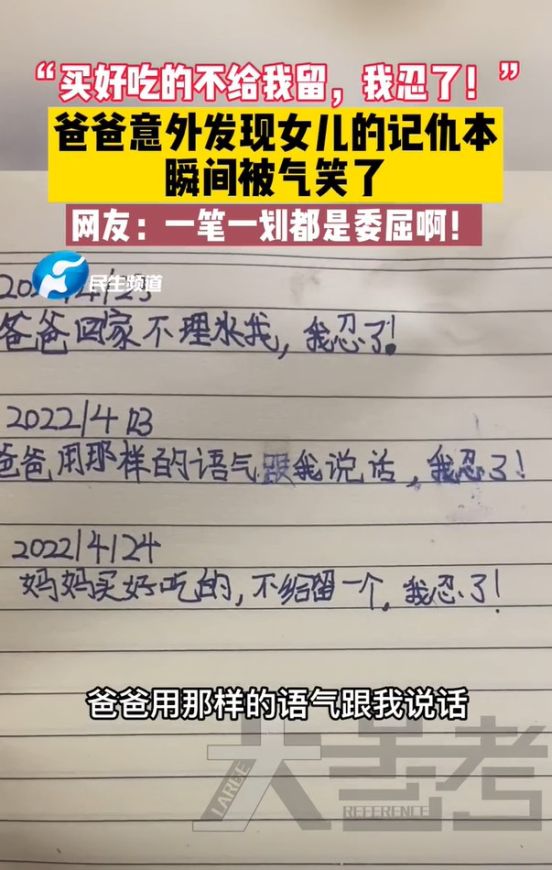 “买好吃的不给我留，我忍了！”
爸爸意外发现女儿的记仇本
瞬间被气笑了
网友：一笔一划都是委屈啊！
民生频道
爸爸回家不理水我，我忍了！
2022/4
爸爸用那样的语气跟我说话，我忍了！
2022/4/24
妈妈买好吃的，不给留一个，我忍了！
爸爸用那样的语气跟我说话
大参考
LARGE
REFERENCE